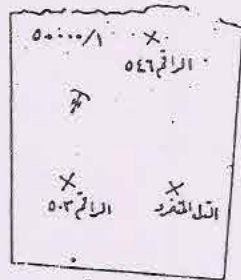 ٥٠٠٠٠/١
الراقم ٥٤٦
الراقم ٥٠٣
التل المنفرد